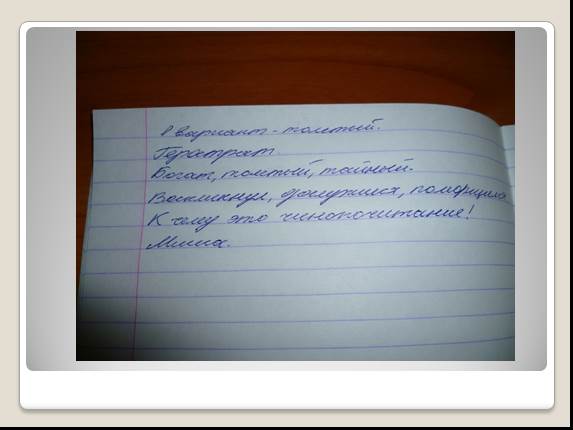 I вариант - толстый.
Герострат
Богат, толстый, тайный.
Воскликнул, дослужился, поморщился
К чему это чинопочитание!
Миша.